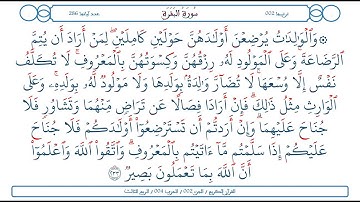 ترتيبها 002 سورة البقرة عدد آياتها 286
۞ وَٱلْوَٰلِدَٰتُ يُرْضِعْنَ أَوْلَٰدَهُنَّ حَوْلَيْنِ كَامِلَيْنِ ۖ لِمَنْ أَرَادَ أَن يُتِمَّ
ٱلرَّضَاعَةَ ۚ وَعَلَى ٱلْمَوْلُودِ لَهُۥ رِزْقُهُنَّ وَكِسْوَتُهُنَّ بِٱلْمَعْرُوفِ ۚ لَا تُكَلَّفُ
نَفْسٌ إِلَّا وُسْعَهَا ۚ لَا تُضَآرَّ وَٰلِدَةٌۢ بِوَلَدِهَا وَلَا مَوْلُودٌ لَّهُۥ بِوَلَدِهِۦ ۚ وَعَلَى
ٱلْوَارِثِ مِثْلُ ذَٰلِكَ ۗ فَإِنْ أَرَادَا فِصَالًا عَن تَرَاضٍ مِّنْهُمَا وَتَشَاوُرٍ فَلَا
جُنَاحَ عَلَيْهِمَا ۗ وَإِنْ أَرَدتُّمْ أَن تَسْتَرْضِعُوٓا۟ أَوْلَٰدَكُمْ فَلَا جُنَاحَ
عَلَيْكُمْ إِذَا سَلَّمْتُم مَّآ ءَاتَيْتُم بِٱلْمَعْرُوفِ ۗ وَٱتَّقُوا۟ ٱللَّهَ وَٱعْلَمُوٓا۟
أَنَّ ٱللَّهَ بِمَا تَعْمَلُونَ بَصِيرٌ ٢٣٣
القرآن الكريم / الجزء 002 / الحزب 004 / الربع الثالث